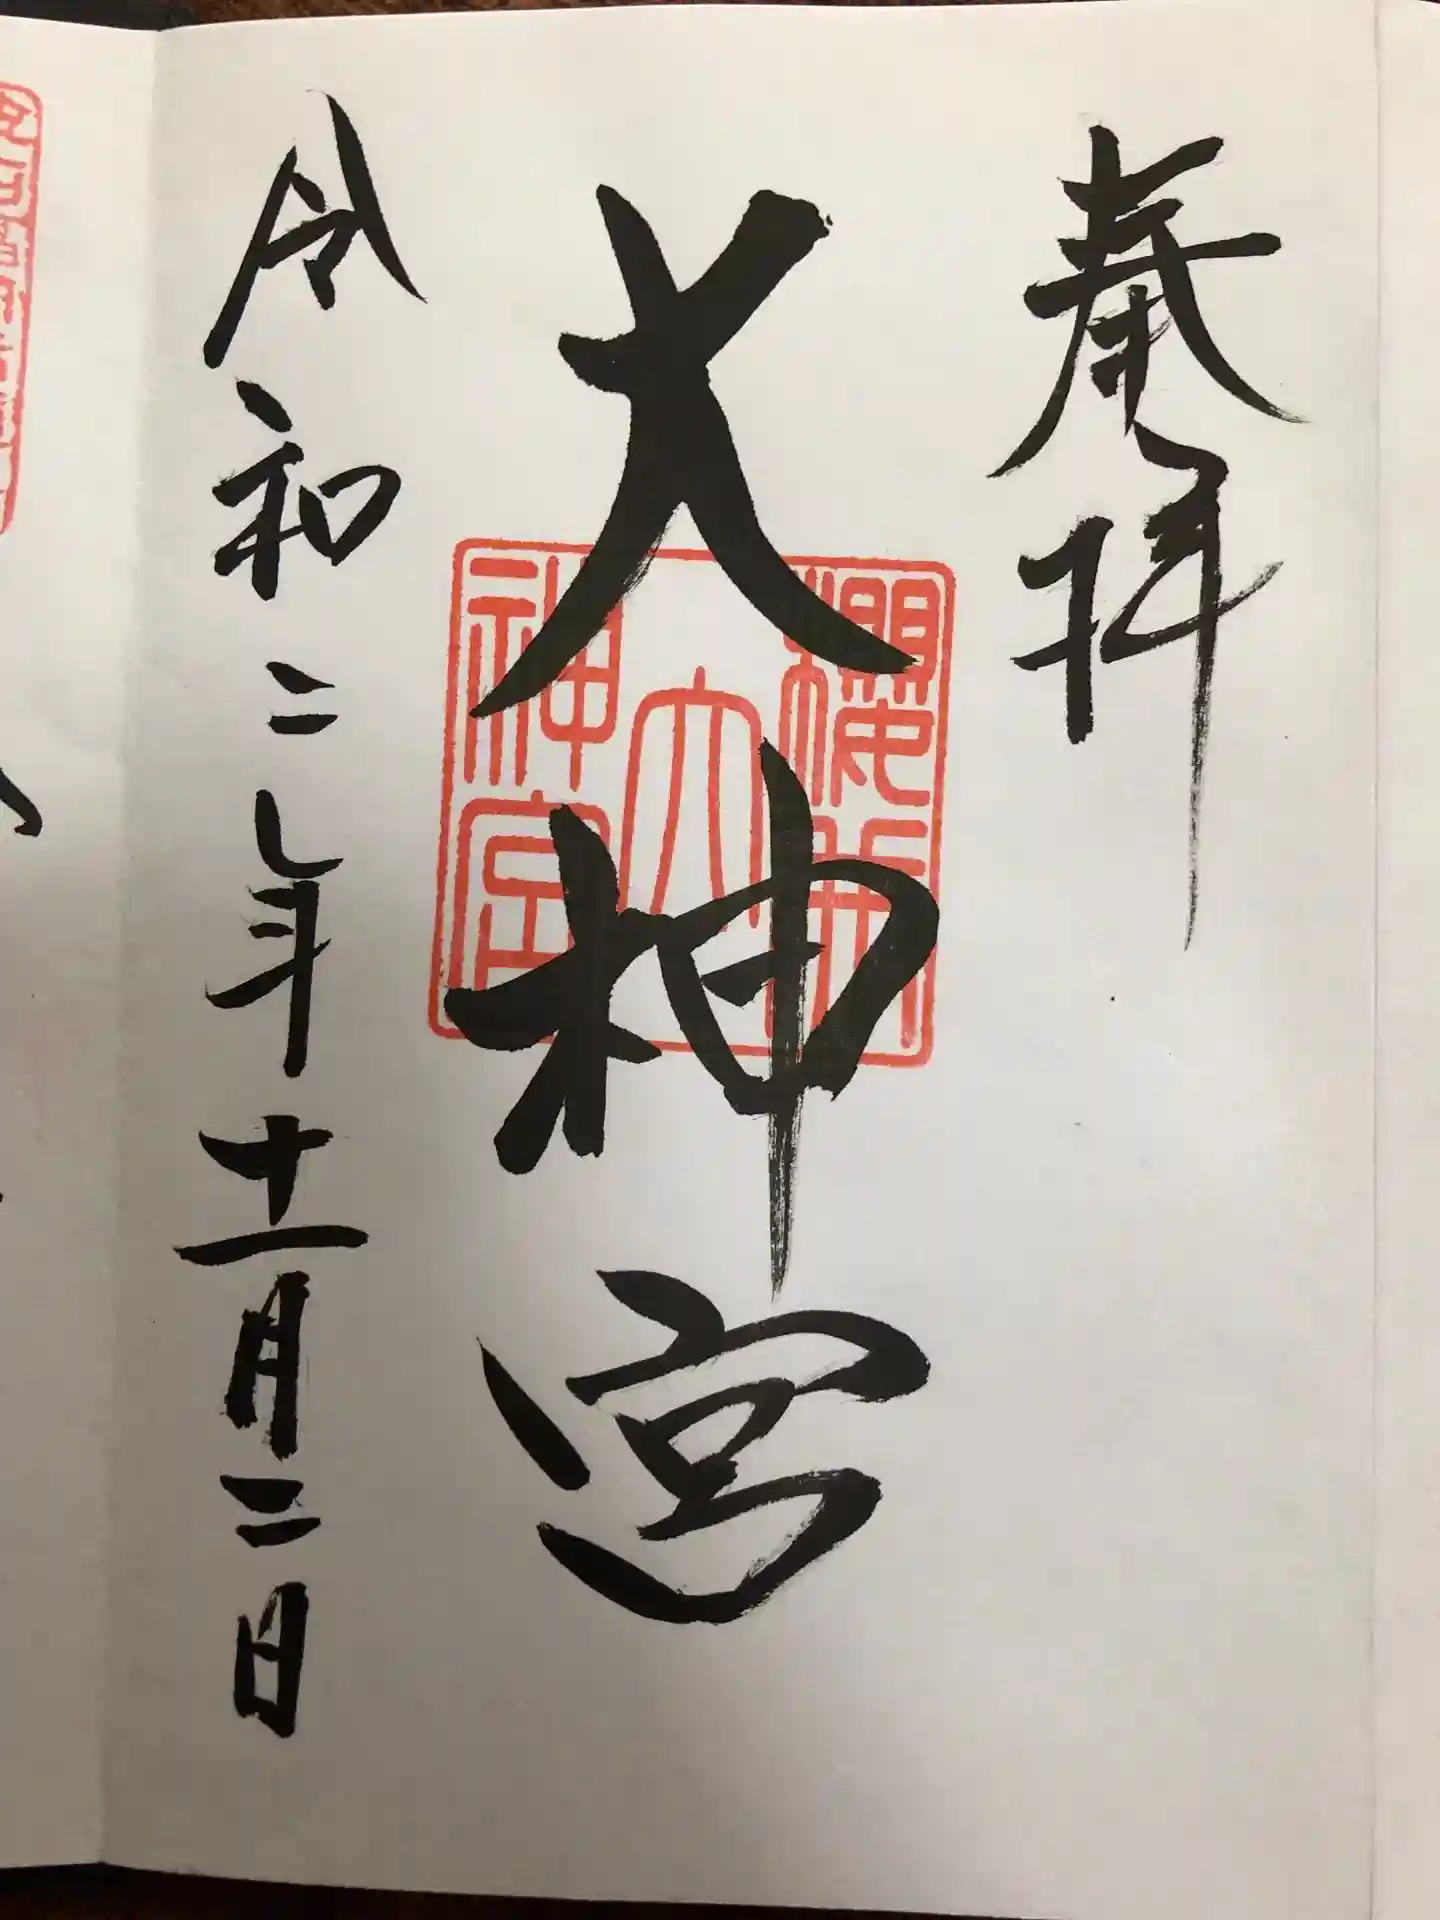 奉拝
大神宮
櫻井
大
神宮
令和二年十一月二日